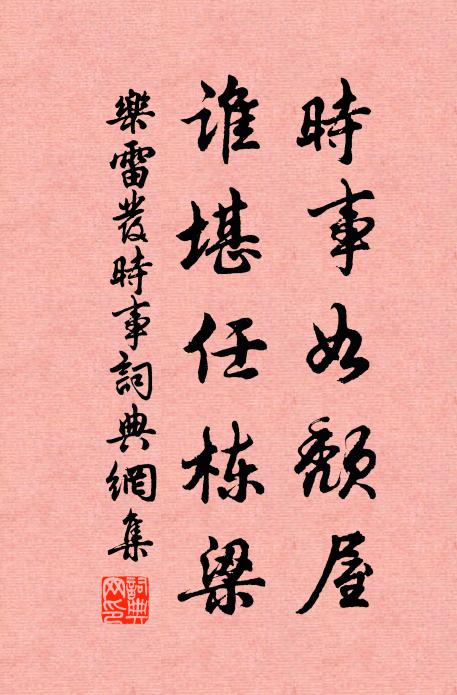 時事如頹屋
谁堪任栋梁
樂雷發時事詞典網集
詞典网印